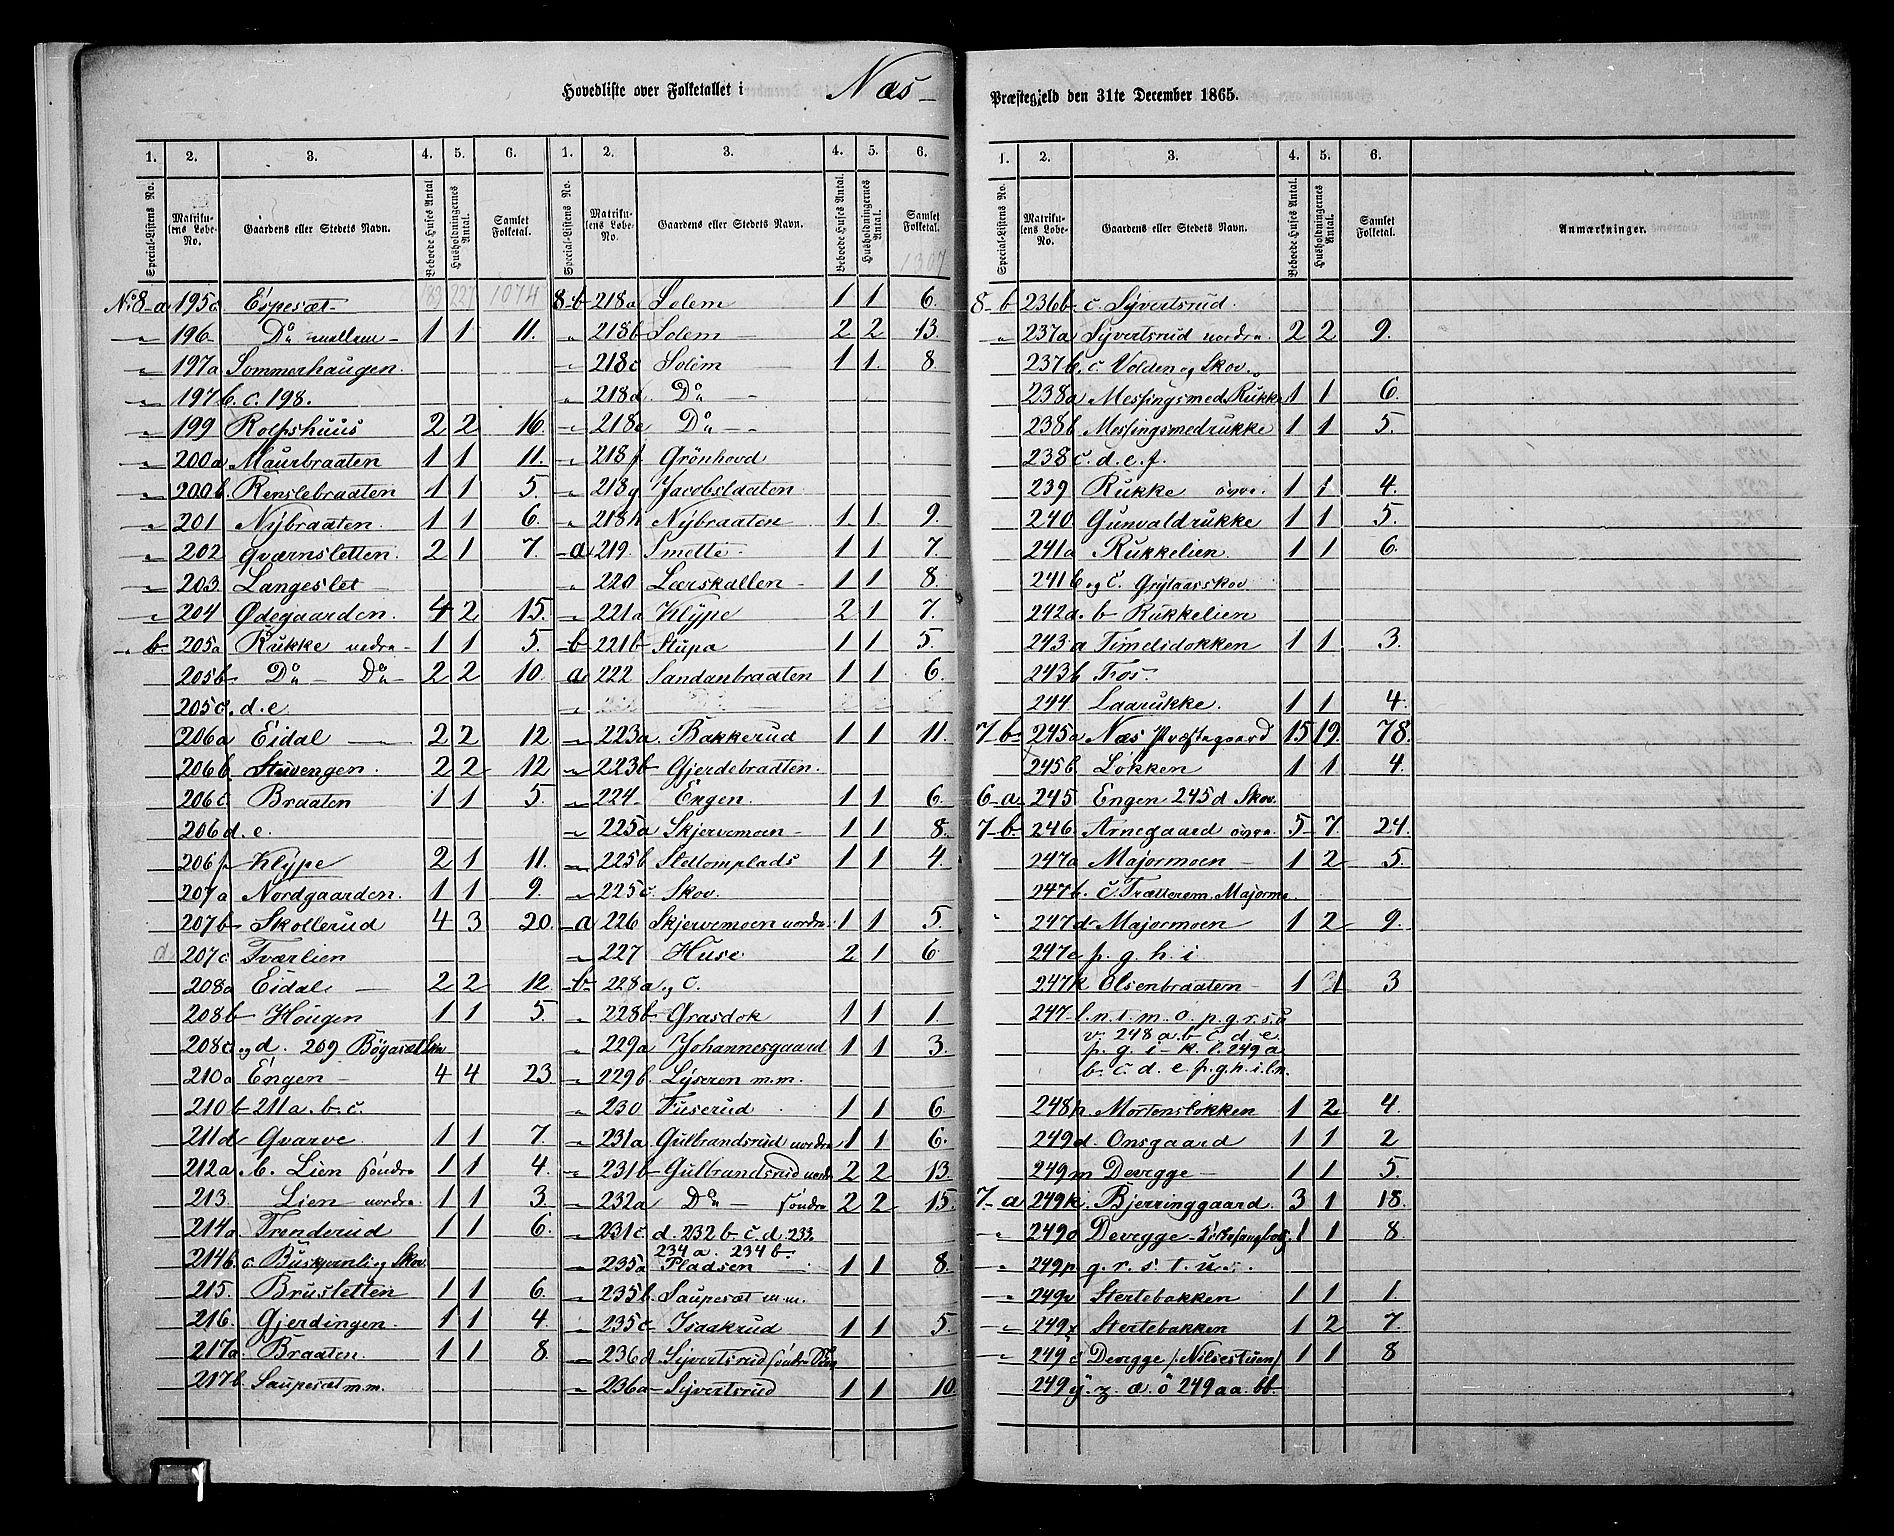 Hovedliste over Folketallet i Næs
1. 2. 3. 4. 5. 6. 1. 2. 3. 4. 5. 6.
Special-Listens No. Matrikulens Løbe-No. Gaardens eller Stedets Navn. Beboede Huses Antal. Husholdningernes Antal. Samlet Folketal. Special-Listens No. Matrikulens Løbe-No. Gaardens eller Stedets Navn. Beboede Huses Antal. Husholdningernes Antal. Samlet Folketal.
1307
No 8-a 195c Espesæt 227 1074
196 Do mellem 1 1 11.
197a Sommerhaugen.
197 b. c. 198.
199 Rolfshuus 2 2 16.
200a Maurbraaten 1 1 11.
200b. Renslebraaten 1 1 5.
201 Nÿbraaten. 1 1 6.
202 Qværnsletten. 2 1 7.
203 Langeslet
204 Ødegaarden. 4 2 15.
b 205a Rukke nedra 1 1 5.
205b Do - Do 2 2 10
205c. d. e
206a Eidal 2 2 12
206b Stuvengen. 2 2 12
206c. Braaten 1 1 5.
206d. e.
206f Klÿpe 2 1 11.
207a Nordgaarden. 1 1 9.
207b Skollerud 4 3 20.
d 207c Tværlien
208a Eidal 2 2 12
208b Haugen 1 1 5.
208c og d. 209 Bögaset
210a Engen 4 4 23
210b 211a. b. c.
211d Qvarve. 1 1 7.
212a b. Lien söndra 1 1 4.
213. Lien nordra. 1 1 3.
214a Trenderud 1 1 6.
214b. c Buskernli og Skov.
215. Brusletten 1 1 6.
216. Gjerdingen. 1 1 4.
217a. Braaten. 1 1 8
217b. Saupesæt m.m.
8-b 218a Solem 1 1 6.
218b Solem 2 2 13
218c Solem 1 1. 8
218d. Do
218e Do
218f Grönhovd
218g Jacobsldaten
218h Nÿbraaten 1. 1. 9.
a 219. Smette 1 1 7.
220 Lærskallen 1 1 8.
221a Klÿpe 2 1 7.
b 221b Stupa 1 1 5.
a 222 Sandanbraaten 1 1 6.
223a. Bakkerud 1 1 11.
223b Gjerdebraaten.
224 Engen. 1 1 6.
225a Skjervemoen 1 1 8.
225b Sletlomplads 1 1 4.
225c. Skov.
a 226 Skjervemoen nordra 1 1 5.
227 Huse 2 1 6.
b 228a og c.
228b Grasdok 1 1 1.
229a Johannesgaard 1 1 3.
229b. Lÿseren m.m.
230 Tuserud 1 1 6.
231a Gulbrandsrud nordra 1 1 6.
231b Gulbrandsrud nordr 2 2 13.
232a Do söndra 2 2 15.
231c d. 232b c. d. 233.
234a. 234b.
235a Pladsen 1 1 8.
235b. Saupesæt m.m.
235c Isaakrud 1 1 5.
236d Sÿvertsrud söndre
236a Sÿvertsrud 1 1 10.
Præstegjeld den 31te December 1865.
1. 2. 3. 4. 5. 6.
Special-Listens No. Matrikulens Løbe-No. Gaardens eller Stedets Navn. Beboede Huses Antal. Husholdningernes Antal. Samlet Folketal. Anmærkninger.
8-b 236b c. Sÿvertsrud.
237a Sÿvertsrud nordra. 2 2 9.
237b. c Volden og Skov.
238a Messingsmed Rukke 1 1 6.
238b Messingsmedrukke 1 1 5.
238c. d. e. f.
239 Rukke övre. 1 1 4.
240. Gunvaldrukke 1 1 5.
241a Rukkelien. 1 1 6.
241b og c. Grÿtaasskov
242a. b Rukkelien
243a Timelidokken 1 1 3.
243b Fos
244. Laarukke. 1 1 4.
7-b 245a Næs Præstegaard 15 19 78.
245b. Løkken 1 1 4.
6-a 245 Engen 245d Skov.
7-b. 246. Arnegaard övra. 5 7 24.
247a Majormoen 1 2 5.
247b. c. Trætterem. Majorme
247d Majormoen 1 2 9.
247e f. g. h. i
247k Olsenbraaten 1 1 3
247-l. n. t. m. o. p. q. r. s. u
v. 248a. b c. d. e.
f. g. i-k. l. 249a
b. c. d. e f. g. h. i. ln.
248h Mortensløkken 1 2 4.
249d. Onsgaard 1 1 2
249m Devegge 1 1 5.
7-a 249k. Bjerringgaard. 3 1 18.
249o Devegge 1 1 8.
249p q. r. s. t. u.
249v Stertebakken 1 1 1
249x Stertebakken 1 2 7.
249 Devegge /Nilsestuen/ 1 1 8
249ÿ. z. æ. ö 249aa. bb.